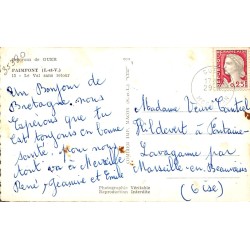 PAIMPONT (I.-et-V.)
12 - Le Val sans retour
Un Bonjour de
Bretagne. nous
espérons que tu
est toujours en bonne
santé. Pour nous
tout va à Merveille
René, Jeanine et Emile
Photographie Véritable
Reproduction Interdite
0,25
Madame Veuve
Hildevert à Fontaine
Lavaganne par
Marseille-en-Beauvaisis
(Oise)